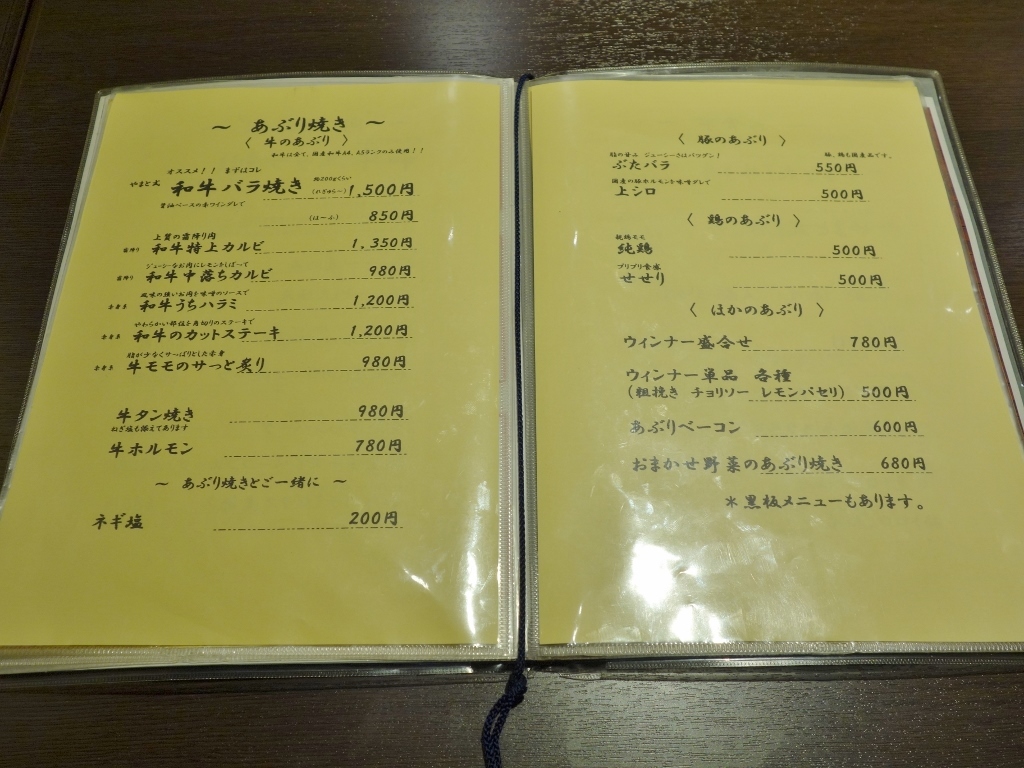 ～ あぶり焼き ～
〈 牛のあぶり 〉
和牛は全て、国産和牛A4、A5ランクのみ使用！！
オススメ！！ まずはコレ
やまと式 和牛バラ焼き 約200gくらい (れぎゅらー) 1,500円
醤油ベースの赤ワインダレで
(はーふ) 850円
上質の霜降り肉
霜降り 和牛特上カルビ 1,350円
ジューシーなお肉にレモンをしぼって
霜降り 和牛中落ちカルビ 980円
風味の強いお肉を味噌のソースで
和牛うちハラミ 1,200円
やわらかい部位を角切りのステーキで
和牛のカットステーキ 1,200円
脂が少なくサッパリとした赤身
牛モモのサっと炙り 980円
牛タン焼き 980円
ねぎ塩も添えてあります
牛ホルモン 780円
～ あぶり焼きとご一緒に ～
ネギ塩 200円
〈 豚のあぶり 〉
脂の甘み ジューシーさはバツグン！ 豚、鶏も国産品です。
ぶたバラ 550円
国産の豚ホルモンを味噌ダレで
上シロ 500円
〈 鶏のあぶり 〉
親鶏モモ
純鶏 500円
プリプリ食感
せせり 500円
〈 ほかのあぶり 〉
ウィンナー盛合せ 780円
ウィンナー単品 各種
(粗挽き チョリソー レモンパセリ) 500円
あぶりベーコン 600円
おまかせ野菜のあぶり焼き 680円
＊黒板メニューもあります。